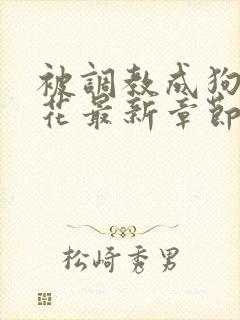 被調教成狗
花最新章節
松崎秀男